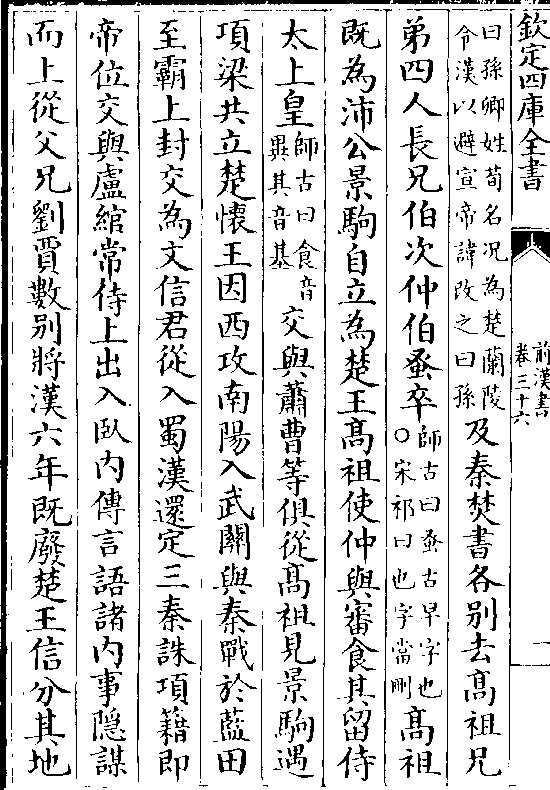 欽定四庫全書
前漢書
卷三十六
一
曰孫卿姓荀名况為楚蘭陵
令漢以避宣帝諱改之曰孫
及秦焚書各别去髙祖兄
弟四人長兄伯次仲伯蚤卒
師古曰蚤古早字也
○宋祁曰也字當刪
髙祖
既為沛公景駒自立為楚王髙祖使仲與審食其留侍
太上皇
師古曰食音
異其音基
交與蕭曹等俱從髙祖見景駒遇
項梁共立楚懷王因西攻南陽入武關與秦戰於藍田
至霸上封交為文信君從入蜀漢還定三秦誅項籍即
帝位交與盧綰常侍上出入臥内傳言語諸内事隠謀
而上從父兄劉賈數别將漢六年既廢楚王信分其地